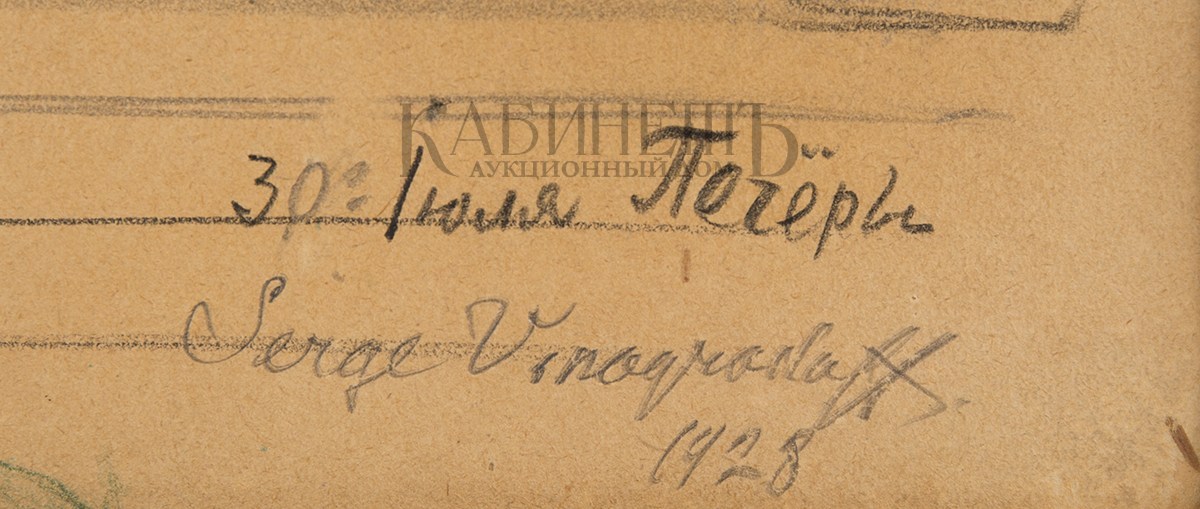 КАБИНЕТЪ
АУКЦИОННЫЙ ДОМ
30го Iюля Печёры
Serge Vinogradoff
1928